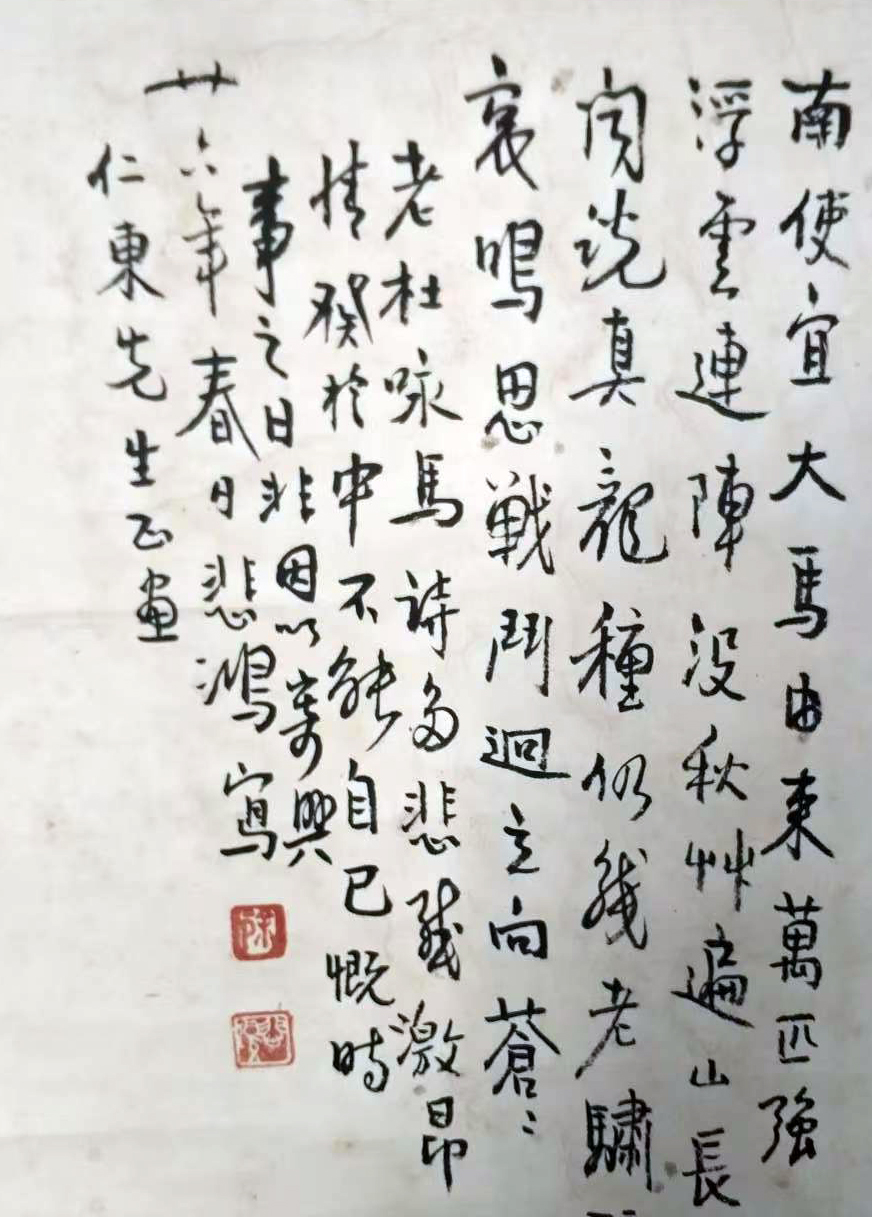 南使宜大馬由来萬匹強
浮雲連陣没秋艸遍山長
闻説真龍種仍残老驌
哀鳴思戰鬥迴立向蒼〻
老杜咏馬詩多悲激昂
情發於中不能自已慨時
事之日非因以寄興
廿六年春日悲鴻寫
仁東先生正畫